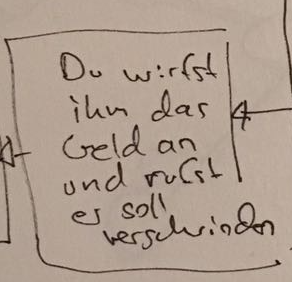 Du wirfst
ihm das
Geld an
und rufst
es soll
verschwinden